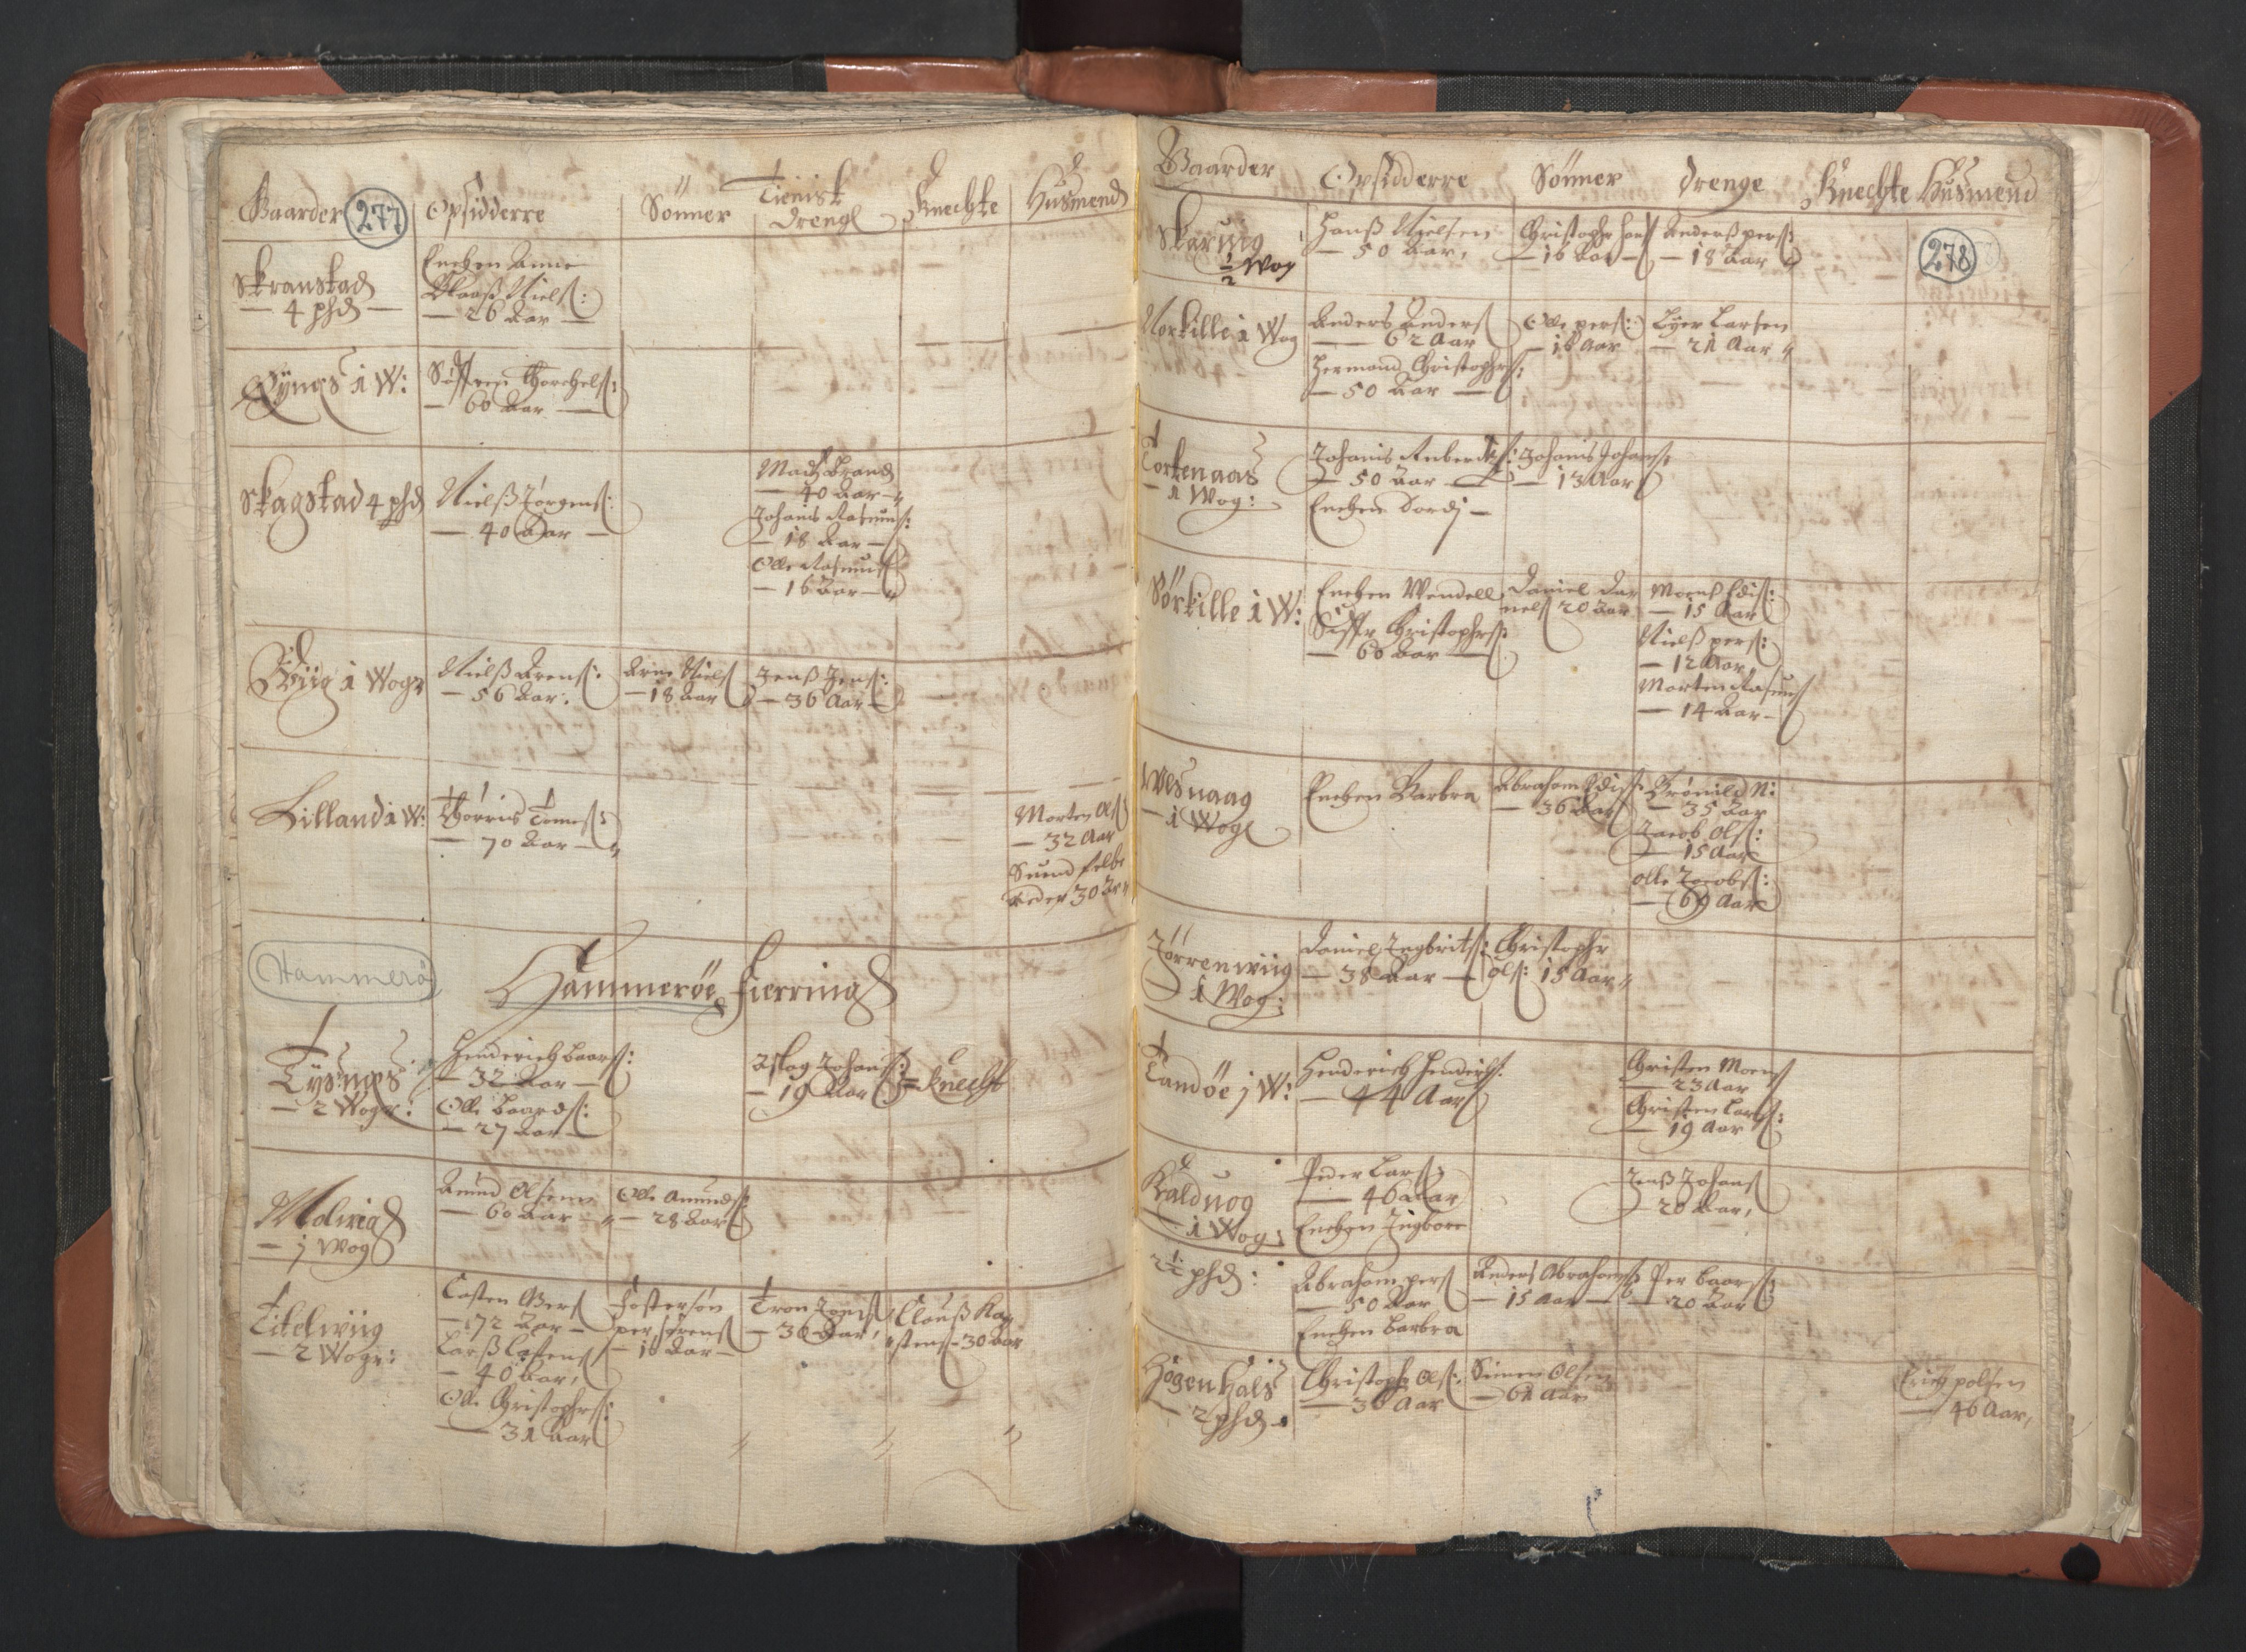 Gaarder 277 Opsidderre Sönner Tienist Drenge Knechte Husmend
Skranstad
— 4 phd —
Enchen Anne
Claass Niels:
— 26 Aar —
1 W:
Söffren Thorchels:
— 60 Aar —
Skagstad 4 phd
Nielss Jörgens:
— 40 Aar —
Madtz Brand
— 40 Aar —
Johanis Rasmus:
— 18 Aar —
Olle Rasmus
— 16 Aar —
Wiig 1 Wog
Nielss Arens:
— 56 Aar:
Arne Niels
— 18 Aar
Jenss Jens:
— 36 Aar —
Lilland 1 W:
Thörris Tomes:
— 70 Aar —
Morten Ols
— 32 Aar
Suend
Peders 30 Aar
Hammerö
Hammeröe Fierring
Tysnes
— 2 Woger:
Henderich Baars:
— 32 Aar —
Olle Baards:
— 27 Aar —
Aslag Johans:
— 19 Aar
= Knecht
Molwig
— j Wog
Amund Olsenn
— 60 Aar —
Olle Amunds:
— 28 Aar
Titelwiig
— 2 Wogr:
Casten Gers
— 72 Aar —
Larss Castens
— 40 Aar,
Olle Christophers:
— 31 Aar
Fostersön
per Sörens
— 18 Aar —
Tron Joens
— 30 Aar,
Clauss Kar
stens — 30 Aar
Gaarder Opsidderre Sönner Drenge Knechte Husmend
278
Skarwig
½ Wog
Hanss Nielsen
— 50 Aar,
Christopher Hans
— 16 Aar —
Anderss pers:
— 18 Aar
Norkille 1 Wog
Anders Anders
— 62 Aar
Hermand Christophers:
— 50 Aar —
Olle pers:
— 18 Aar
Lyer Larsen
— 21 Aar
Tortenaas
— 1 Wog:
Johanis
— 50 Aar —
Enchen Dordj —
Johanis Johans:
— 13 Aar
Sörkille 1 W:
Enchen Wendell
Siffr Christophers:
— 60 Aar —
Daniel Da
niels 20 Aar
Moens Edis:
— 15 Aar
Nielss pers:
— 12 Aar,
Morten Rasmus
— 14 Aar —
Ulsuaag
— 1 Wog
Enchen Barbra
Abraham Edis:
— 36 Aar
Brönild N:
— 35 Aar
Jacob Ols:
— 15 Aar
Olle Jacobs:
— 60 Aar
Jörrenwiig
— 1 Wog:
Daniel Ingbrits:
— 38 Aar —
Christopher
Ols: 15 Aar
Tandöe j W:
Henderich Henderichs:
— 44 Aar
Christen Moens
— 23 Aar
Christen Lars:
— 19 Aar
Kalduog
— 1 Wog:
Peder Lars:
— 46 Aar
Enchen Ingborr
Jenss Johans
— 20 Aar,
2½ phd:
Abraham pers
— 50 Aar
Enchen Barbra
Anders Abrahams:
— 15 Aar —
Per Baars:
— 20 Aar
Högen Hals
— 2 phd —
Christopher Ols:
— 36 Aar
Simen Olsen
— 61 Aar
Erich polsen
— 46 Aar,